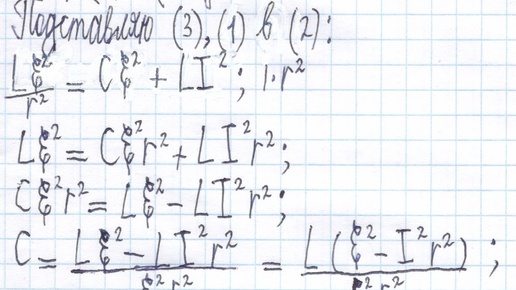 Подставляю (3), (1) в (2):
Lℰ²/r² = Cℰ² + LI²; |·r²
Lℰ² = Cℰ²r² + LI²r²;
Cℰ²r² = Lℰ² − LI²r²;
C = (Lℰ² − LI²r²)/(ℰ²r²) = L(ℰ² − I²r²)/(ℰ²r²);